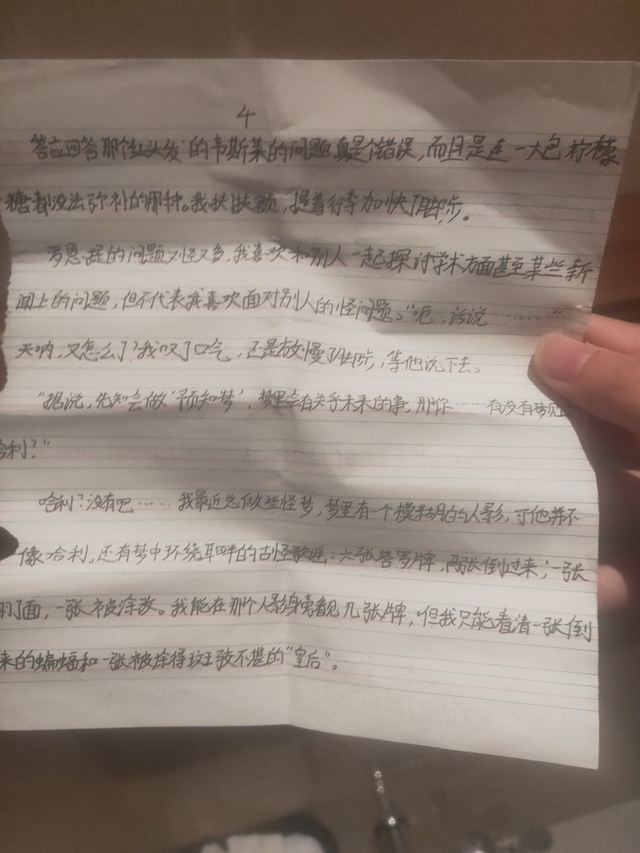 4
答应回答那个红头发的韦斯莱的问题真是个错误，而且是连一大包柠檬
糖都没法弥补的那种。我扶扶额，提着行李加快了脚步。
罗恩提的问题又怪又多，我喜欢和别人一起探讨学术方面甚至某些新
闻上的问题，但不代表我喜欢面对别人的怪问题。“呃，话说………”
天呐，又怎么了？我叹了口气，还是放慢了脚步，等他说下去。
“据说，先知会做‘预知梦’，梦里会有关乎未来的事，那你……有没有梦见
哈利？”
哈利？没有吧……我最近总做些怪梦，梦里有一个模糊的人影，可他并不
像哈利，还有梦中环绕耳畔的古怪歌谣：六张塔罗牌，两张倒过来；一张
了面，一张被涂改。我能在那个人影身旁看见几张牌，但我只能看清一张倒
来的蝙蝠和一张被涂得斑驳不堪的“皇后”。